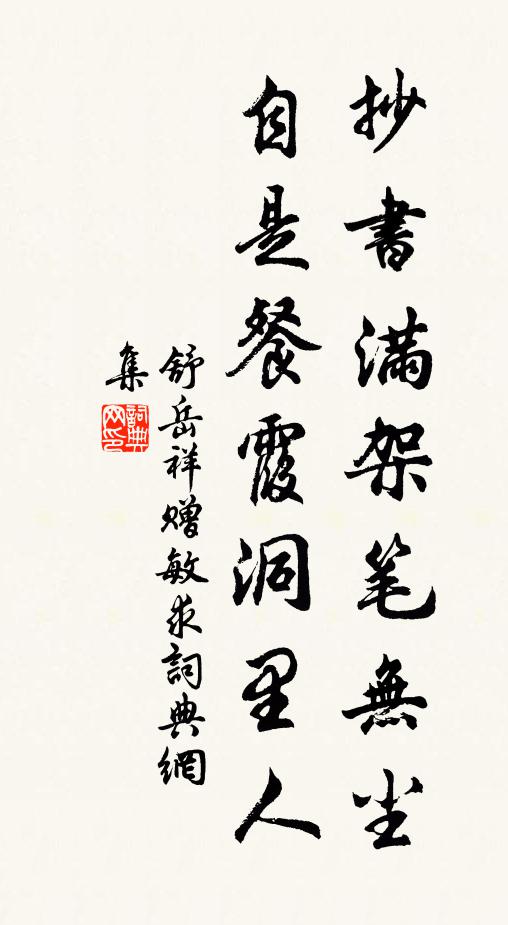 抄書滿架笔無尘
自是餐霞洞里人
舒岳祥赠敏求詞典網
集
詞典网印